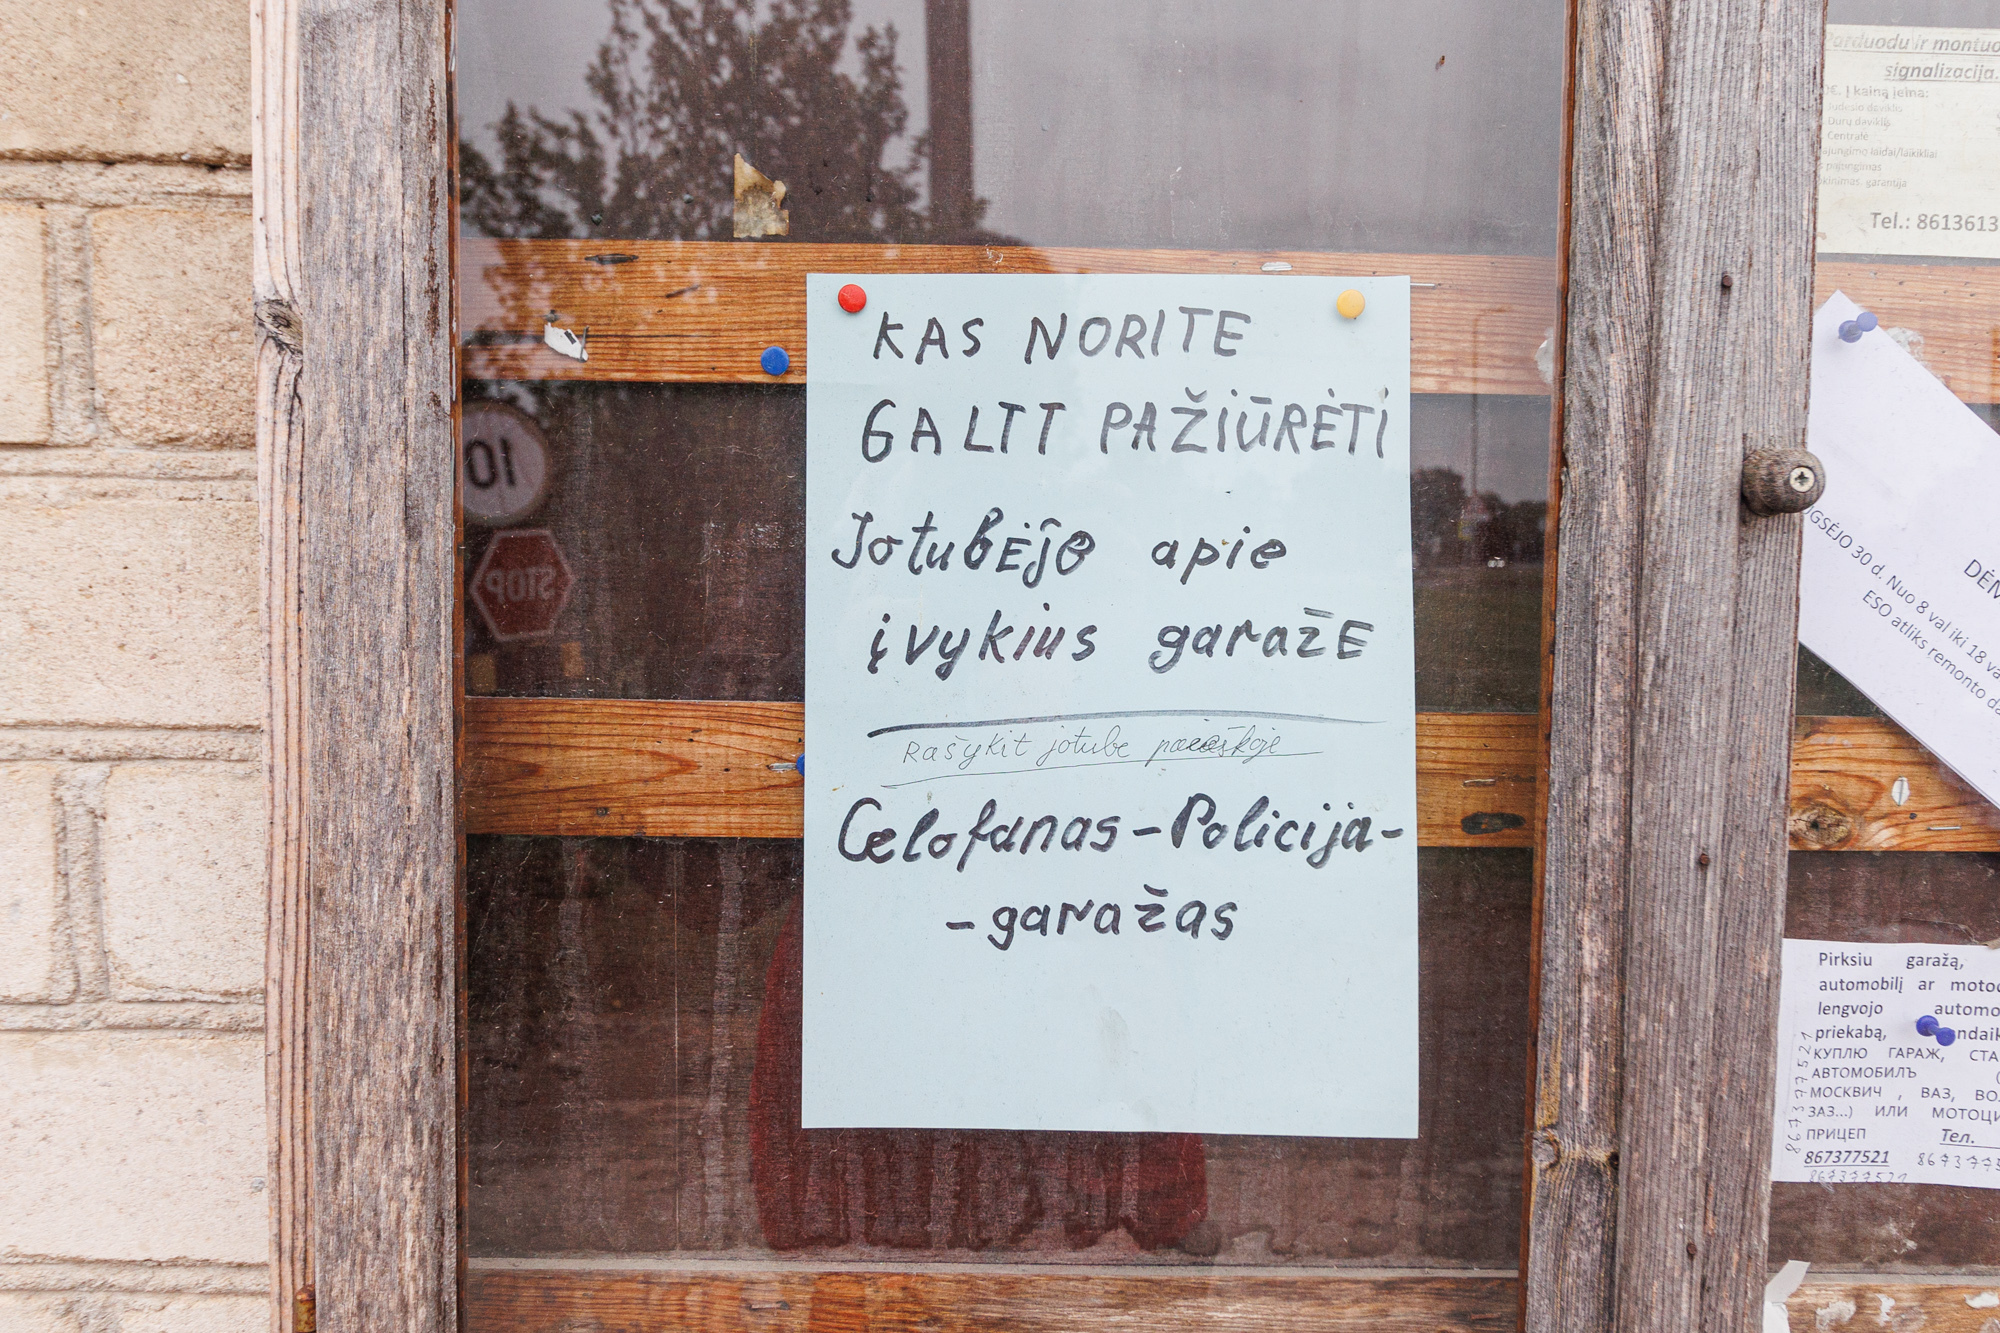 KAS NORITE
GALTT PAŽIŪRĖTI
Jotubėje apie
įvykius garažE
Rašykit jotube paieškoje
Celofanas-Policija-
-garažas
Parduodu ir montuo
signalizacija.
Į kainą įeina:
Judesio daviklis
Durų daviklis
Centralė
pajungimas
garantija
Tel.: 8613613
DĖM
GSĖJO 30 d. Nuo 8 val iki 18 va
ESO atliks remonto da
Pirksiu garažą,
automobilį ar motoc
lengvojo automo
priekabą, ndaik
КУПЛЮ ГАРАЖ, СТА
АВТОМОБИЛЪ (
МОСКВИЧ , ВАЗ, ВО
ЗАЗ...) ИЛИ МОТОЦИ
ПРИЦЕП Тел.
867377521 8673775
867377521
867377521
10
STOP